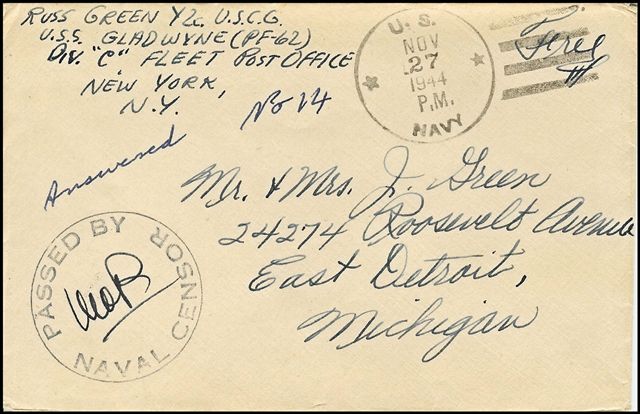 Russ Green Y2c, U.S.C.G.
U.S.S. GLADWYNE (PF-62)
Div. "C" FLEET POST OFFICE
NEW YORK,
N.Y.
No 14
U. S.
NOV
27
1944
P.M.
NAVY
Free
Answered
Mr. & Mrs. J. Green
24274 Roosevelt Avenue
East Detroit,
Michigan
PASSED BY
NAVAL CENSOR